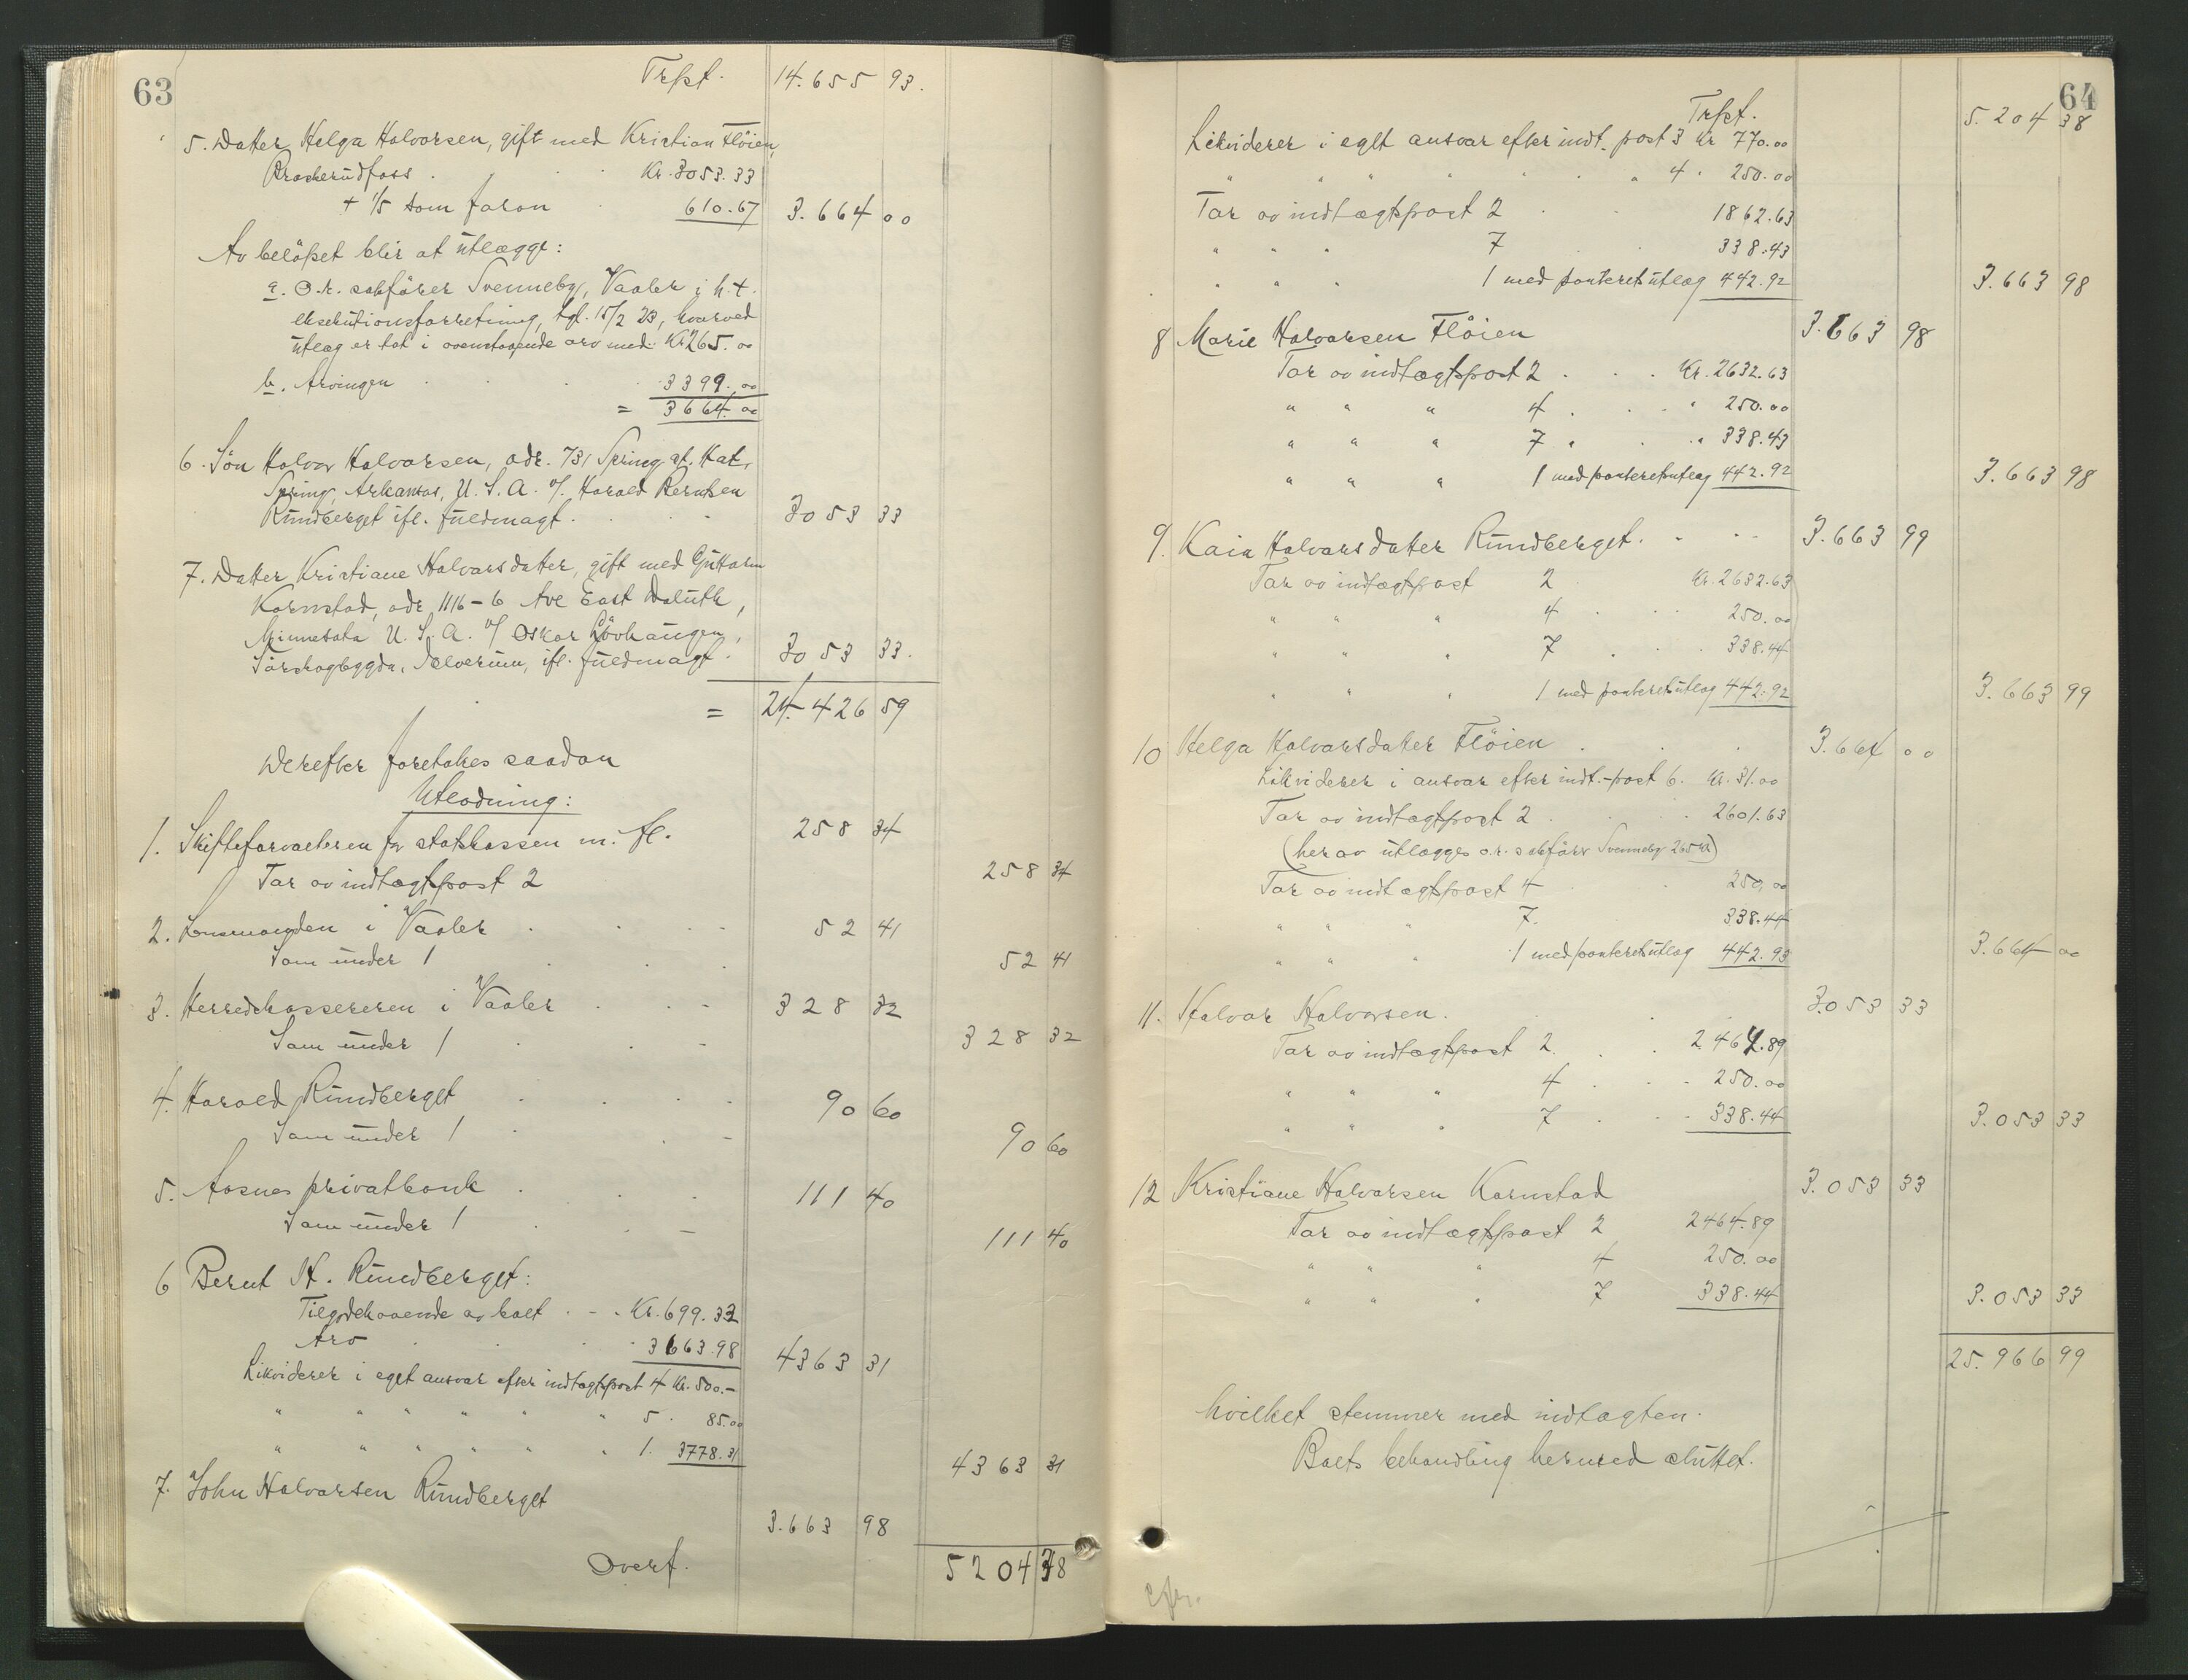 63
Trfst. 14.655 93.
5. Datter Helga Halvorsen, gift med Kristian Flöien,
Braskerudfoss . . . Kr. 3053.33
+ 1/5 som foran . 610.67 3.664 00
Av belöpet blir at utlægge:
a. O.r. sakförer Svenneby, Vaaler i h.t.
eksekutionsforretning, tgl. 15/2 23, hvorved
utlæg er tat i ovenstaaende arv med: Kr 265.00
b. Arvingen . . . 3399.00
= 3664.00
6. Sön Halvor Halvorsen, adr. 731 Spring st. Hat.
Spring, Arkansas, U.S.A. v/ Harald Berntsen
Rundberget ifl. fuldmagt. . . . 3053 33
7. Datter Kristiane Halvorsdatter, gift med Guttorm
Kornstad, adr. 1116-6 Ave East Duluth,
Minnesota U.S.A. v/ Oskar Lövhaugen,
Sörskogbygda, Elverum, ifl. fuldmagt. 3053 33.
= 24.426 59
Derefter foretakes saadan
Utlodning:
1. Skifteforvalteren for statskassen m. fl. 258 34
Tar av indtægtspost 2 258 34
2. Lensmanden i Vaaler . . . 52 41
Som under 1 . . . 52 41
3. Herredskassereren i Vaaler . . - 328 32
Som under 1 . . - 328 32
4. Harald Rundberget . . . - 90 60
Som under 1 . . - 90 60
5. Aasnes privatbank . . . 111 40
Som under 1 . . - 111 40
6 Bernt H. Rundberget:
Tilgodehavende av boet . - . Kr. 699.33
Arv . . . 3663.98 4363 31
Likviderer i eget ansvar efter indtægtspost 4 Kr. 500.-
" " " " " " 5 . 85.00
" " " " " " 1. 3778.31 4363 31
7. John Halvorsen Rundberget
3.663 98
Overf. 5204 38
64
Trfst. 5.204 38
Likviderer i eget ansvar efter indt. post 3 Kr 770.00
" " " " " " 4 . 250.00
Tar av indtægtspost 2 . . 1862.63
" " " 7 . 338.43
" " " 1 med panteretutlæg 442.92 3.663 98
8 Marie Halvorsen Flöien 3.663 98
Tar av indtægtspost 2 . . . Kr. 2632.63
" " " 4 . . . 250.00
" " " 7 . . . 338.43
" " " 1 med panteretutlæg 442.92 3.663 98
9. Kaia Halvorsdatter Rundberget. - - - 3.663 99
Tar av indtægtspost 2 Kr. 2632.63
" " " 4 . . . 250.00
" " " 7 . . . 338.44
" " " 1 med panteretutlæg 442.92 3.663 99
10 Helga Halvorsdatter Flöien . . . 3.664 00
Likviderer i ansvar efter indt.-post 6. Kr. 31.00
Tar av indtægtspost 2 . . . 2601.63
(herav utlægges o.r. sakförer Svenneby 265 kr)
Tar av indtægtspost 4 . . 250.00
" " " 7. 338.44
" " " 1 med panteretutlæg 442.93 3.664 00
11. Halvor Halvorsen. . . . 3.053 33
Tar av indtægtspost 2. . . 2.464.89
" " " 4 . . - 250.00
" " " 7 . . - 338.44 3.053 33
12 Kristiane Halvorsen Kornstad 3.053 33
Tar av indtægtspost 2 2464.89
" " " 4 250.00
" " " 7 338.44 3.053 33
25.966 99
hvilket stemmer med indtægten.
Boets behandling hermed sluttet.